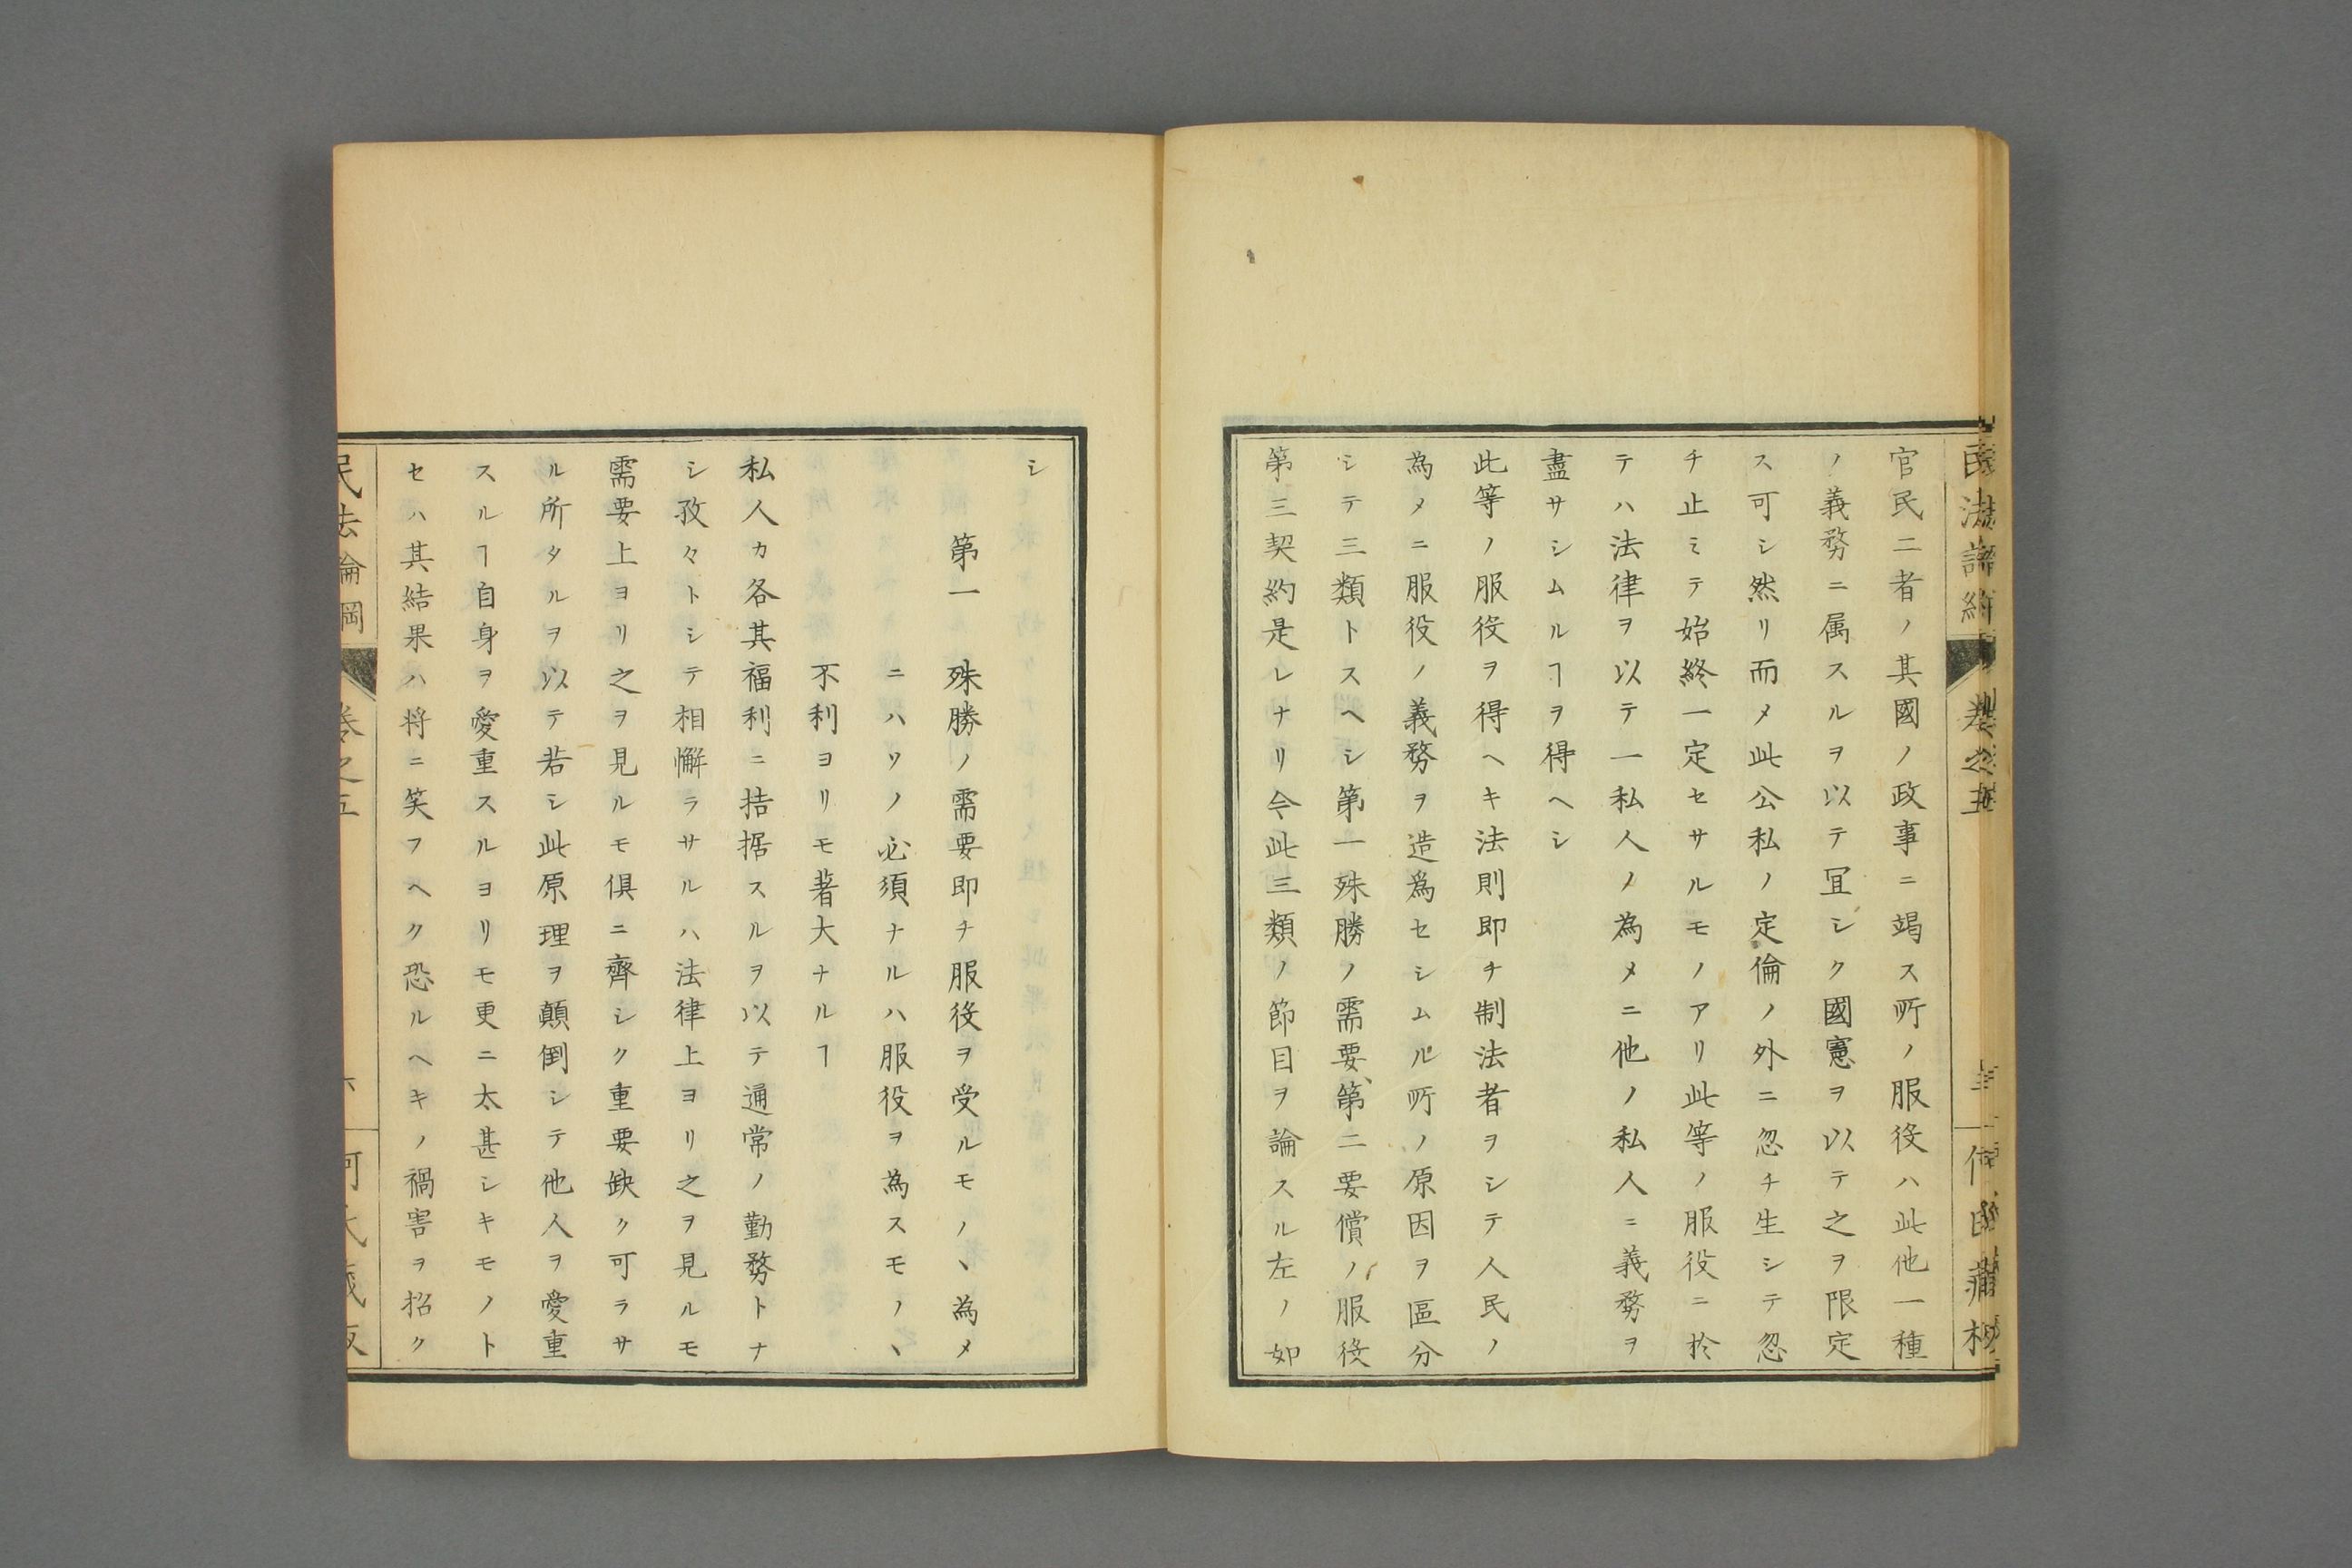 官民二者ノ其國ノ政事ニ竭ス所ノ服役ハ此他一種
ノ義務ニ属スルヲ以テ冝シク國憲ヲ以テ之ヲ限定
ス可シ然リ而メ此公私ノ定倫ノ外ニ忽チ生シテ忽
チ止ミテ始終一定セサルモノアリ此等ノ服役ニ於
テハ法律ヲ以テ一私人ノ為メニ他ノ私人ニ義務ヲ
盡サシムルヿヲ得ヘシ
此等ノ服役ヲ得ヘキ法則即チ制法者ヲシテ人民ノ
為メニ服役ノ義務ヲ造爲セシムル所ノ原因ヲ區分
シテ三類トスヘシ第一殊勝ノ需要、第二要償ノ服役
第三契約是レナリ今此三類ノ節目ヲ論スル左ノ如
シ
第一 殊勝ノ需要即チ服役ヲ受ルモノヽ為メ
ニハソノ必須ナルハ服役ヲ為スモノヽ
不利ヨリモ著大ナルヿ
私人カ各其福利ニ拮据スルヲ以テ通常ノ勤務トナ
シ孜々トシテ相懈ラサルハ法律上ヨリ之ヲ見ルモ
需要上ヨリ之ヲ見ルモ倶ニ齊シク重要缺ク可ラサ
ル所タルヲ以テ若シ此原理ヲ顛倒シテ他人ヲ愛重
スルヿ自身ヲ愛重スルヨリモ更ニ太甚シキモノト
セハ其結果ハ将ニ笑フヘク恐ルヘキノ禍害ヲ招ク
民法論綱 巻之五